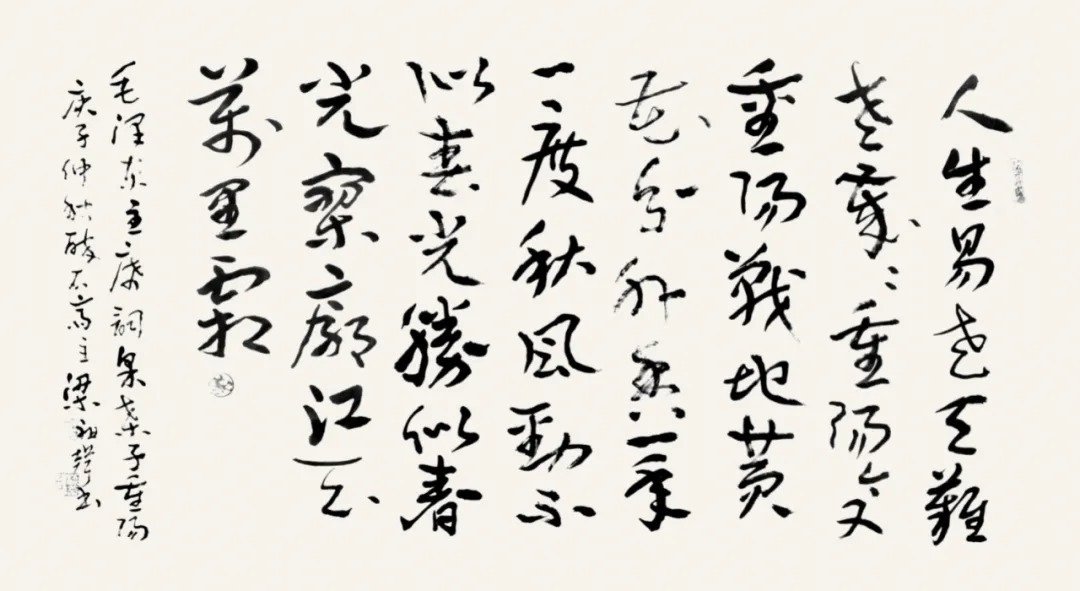 人生易老天難
老歲〻重陽今又
重陽戰地黄
花分外香一年
一度秋風勁不
似春光勝似春
光寥廓江天
萬里霜
毛澤东主席詞采桑子重陽
庚子仲秋石斋主梁书